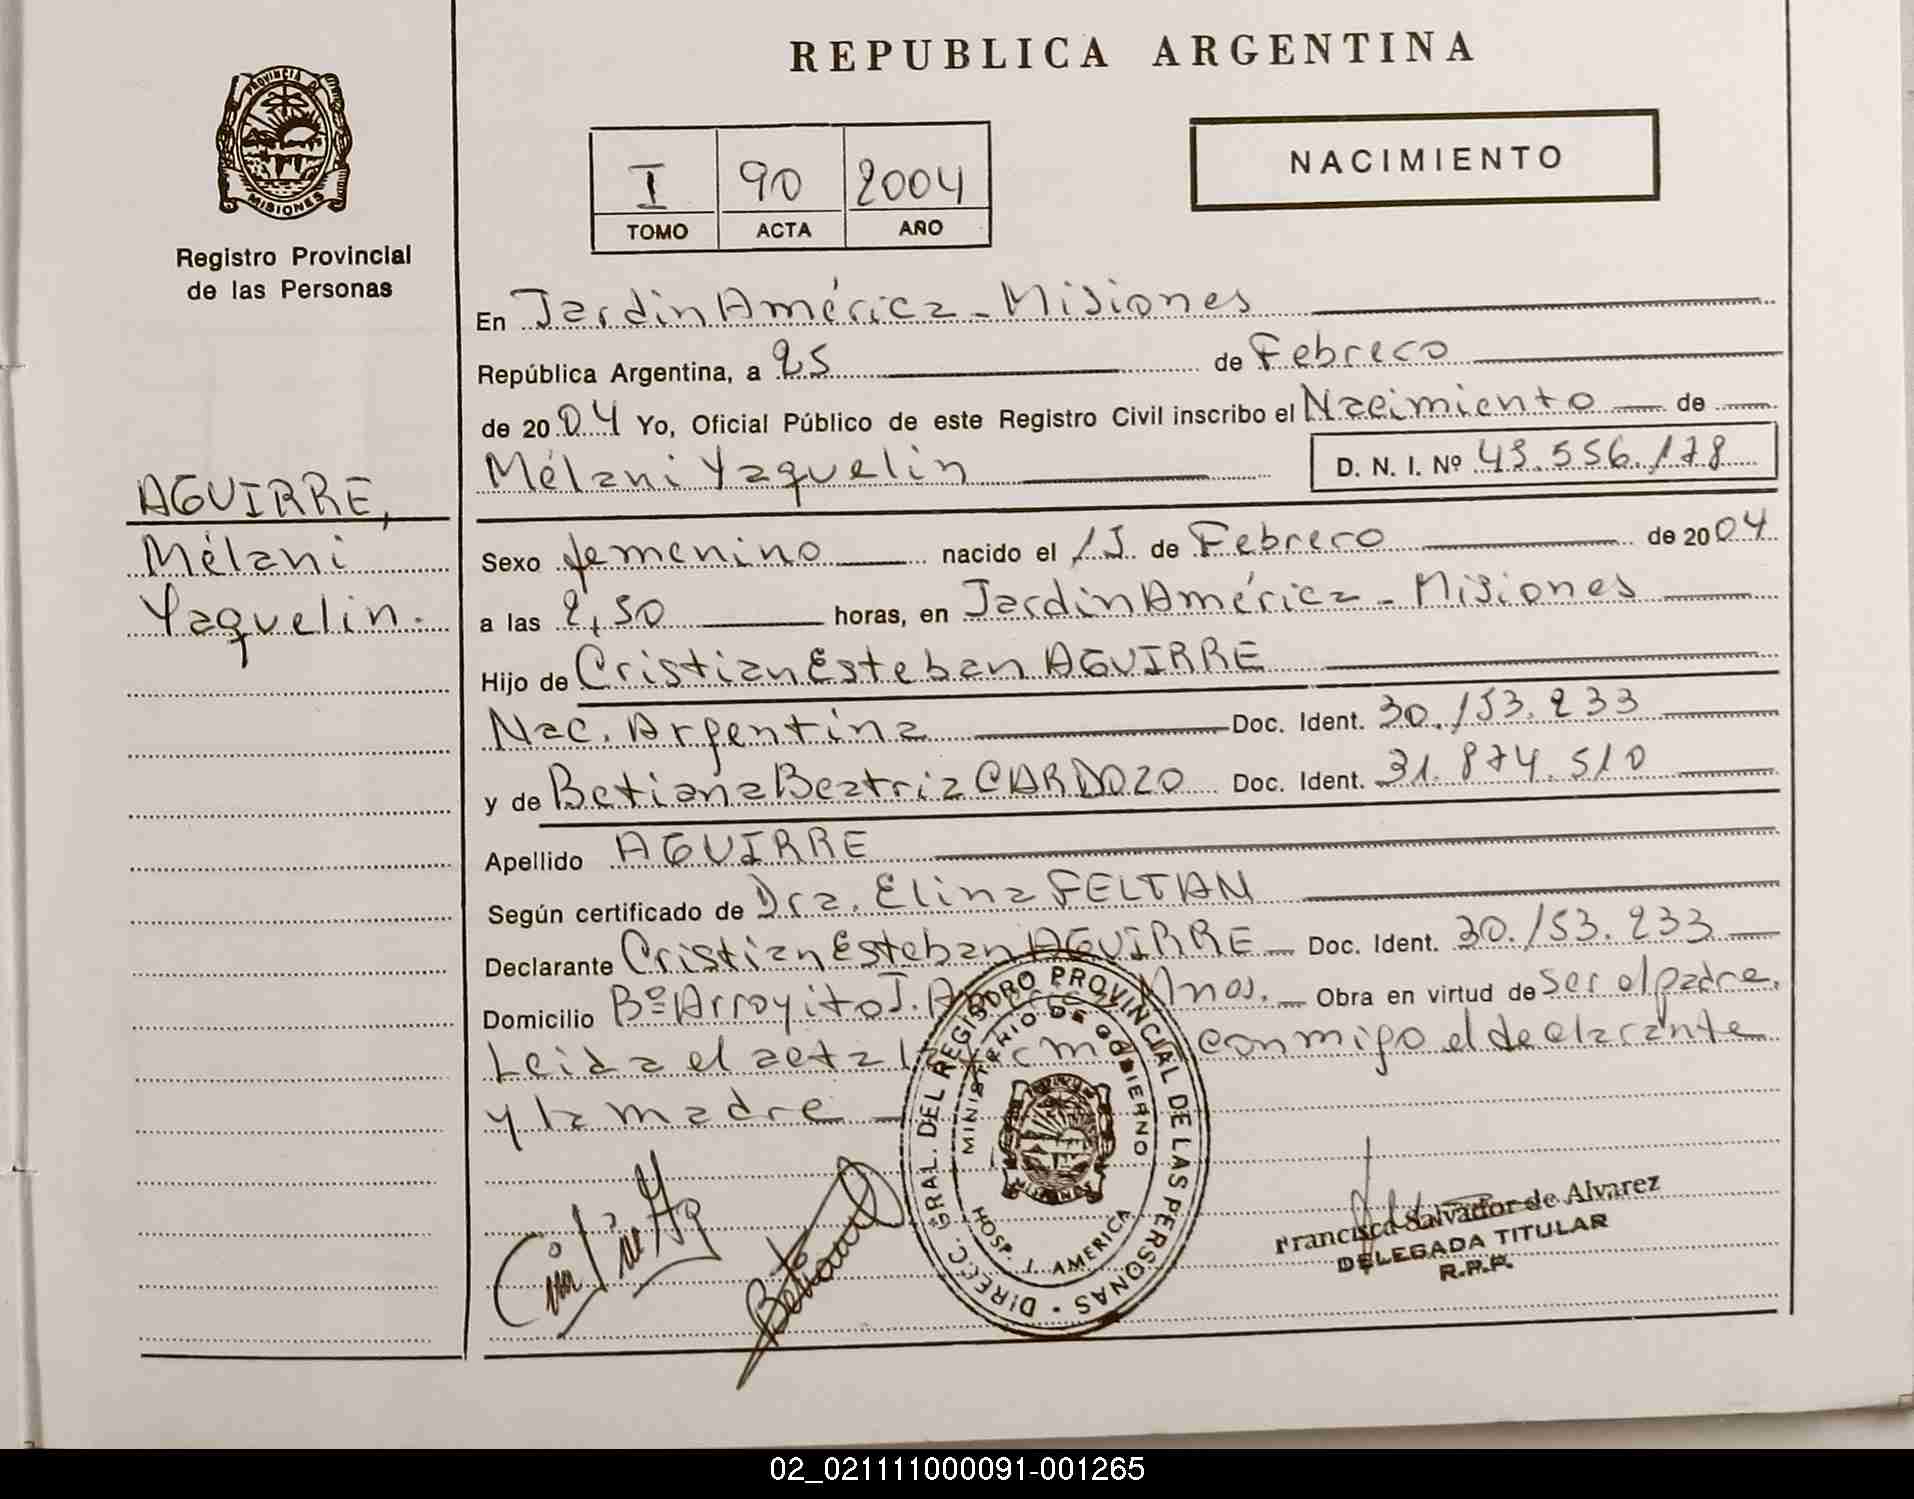 REPUBLICA ARGENTINA
PROVINCIA DE
MISIONES
Registro Provincial
de las Personas
I 90 2004
TOMO ACTA AÑO
NACIMIENTO
En Jardin América - Misiones
República Argentina, a 25 de Febrero
de 2004 Yo, Oficial Público de este Registro Civil inscribo el Nacimiento de
Mélani Yaquelin D. N. I. Nº 45.556.178
AGUIRRE,
Mélani
Yaquelin.
Sexo femenino nacido el 15 de Febrero de 2004
a las 2,50 horas, en Jardin América - Misiones
Hijo de Cristian Esteban AGUIRRE
Nac. Argentina Doc. Ident. 30.153.233
y de Betiana Beatriz CARDOZO Doc. Ident. 31.874.510
Apellido AGUIRRE
Según certificado de Dra. Elina FELTAN
Declarante Cristian Esteban AGUIRRE Doc. Ident. 30.153.233
Domicilio Bº Arroyito J. A Mnes. Obra en virtud de ser el padre.
Leida el acta la conmigo el declarante
y la madre
DIRECC. GRAL. DEL REGISTRO PROVINCIAL DE LAS PERSONAS
MINISTERIO DE GOBIERNO
HOSP. J. AMERICA
MISIONES
Betiana
Francisca Salvador de Alvarez
DELEGADA TITULAR
R.P.P.
02_021111000091-001265